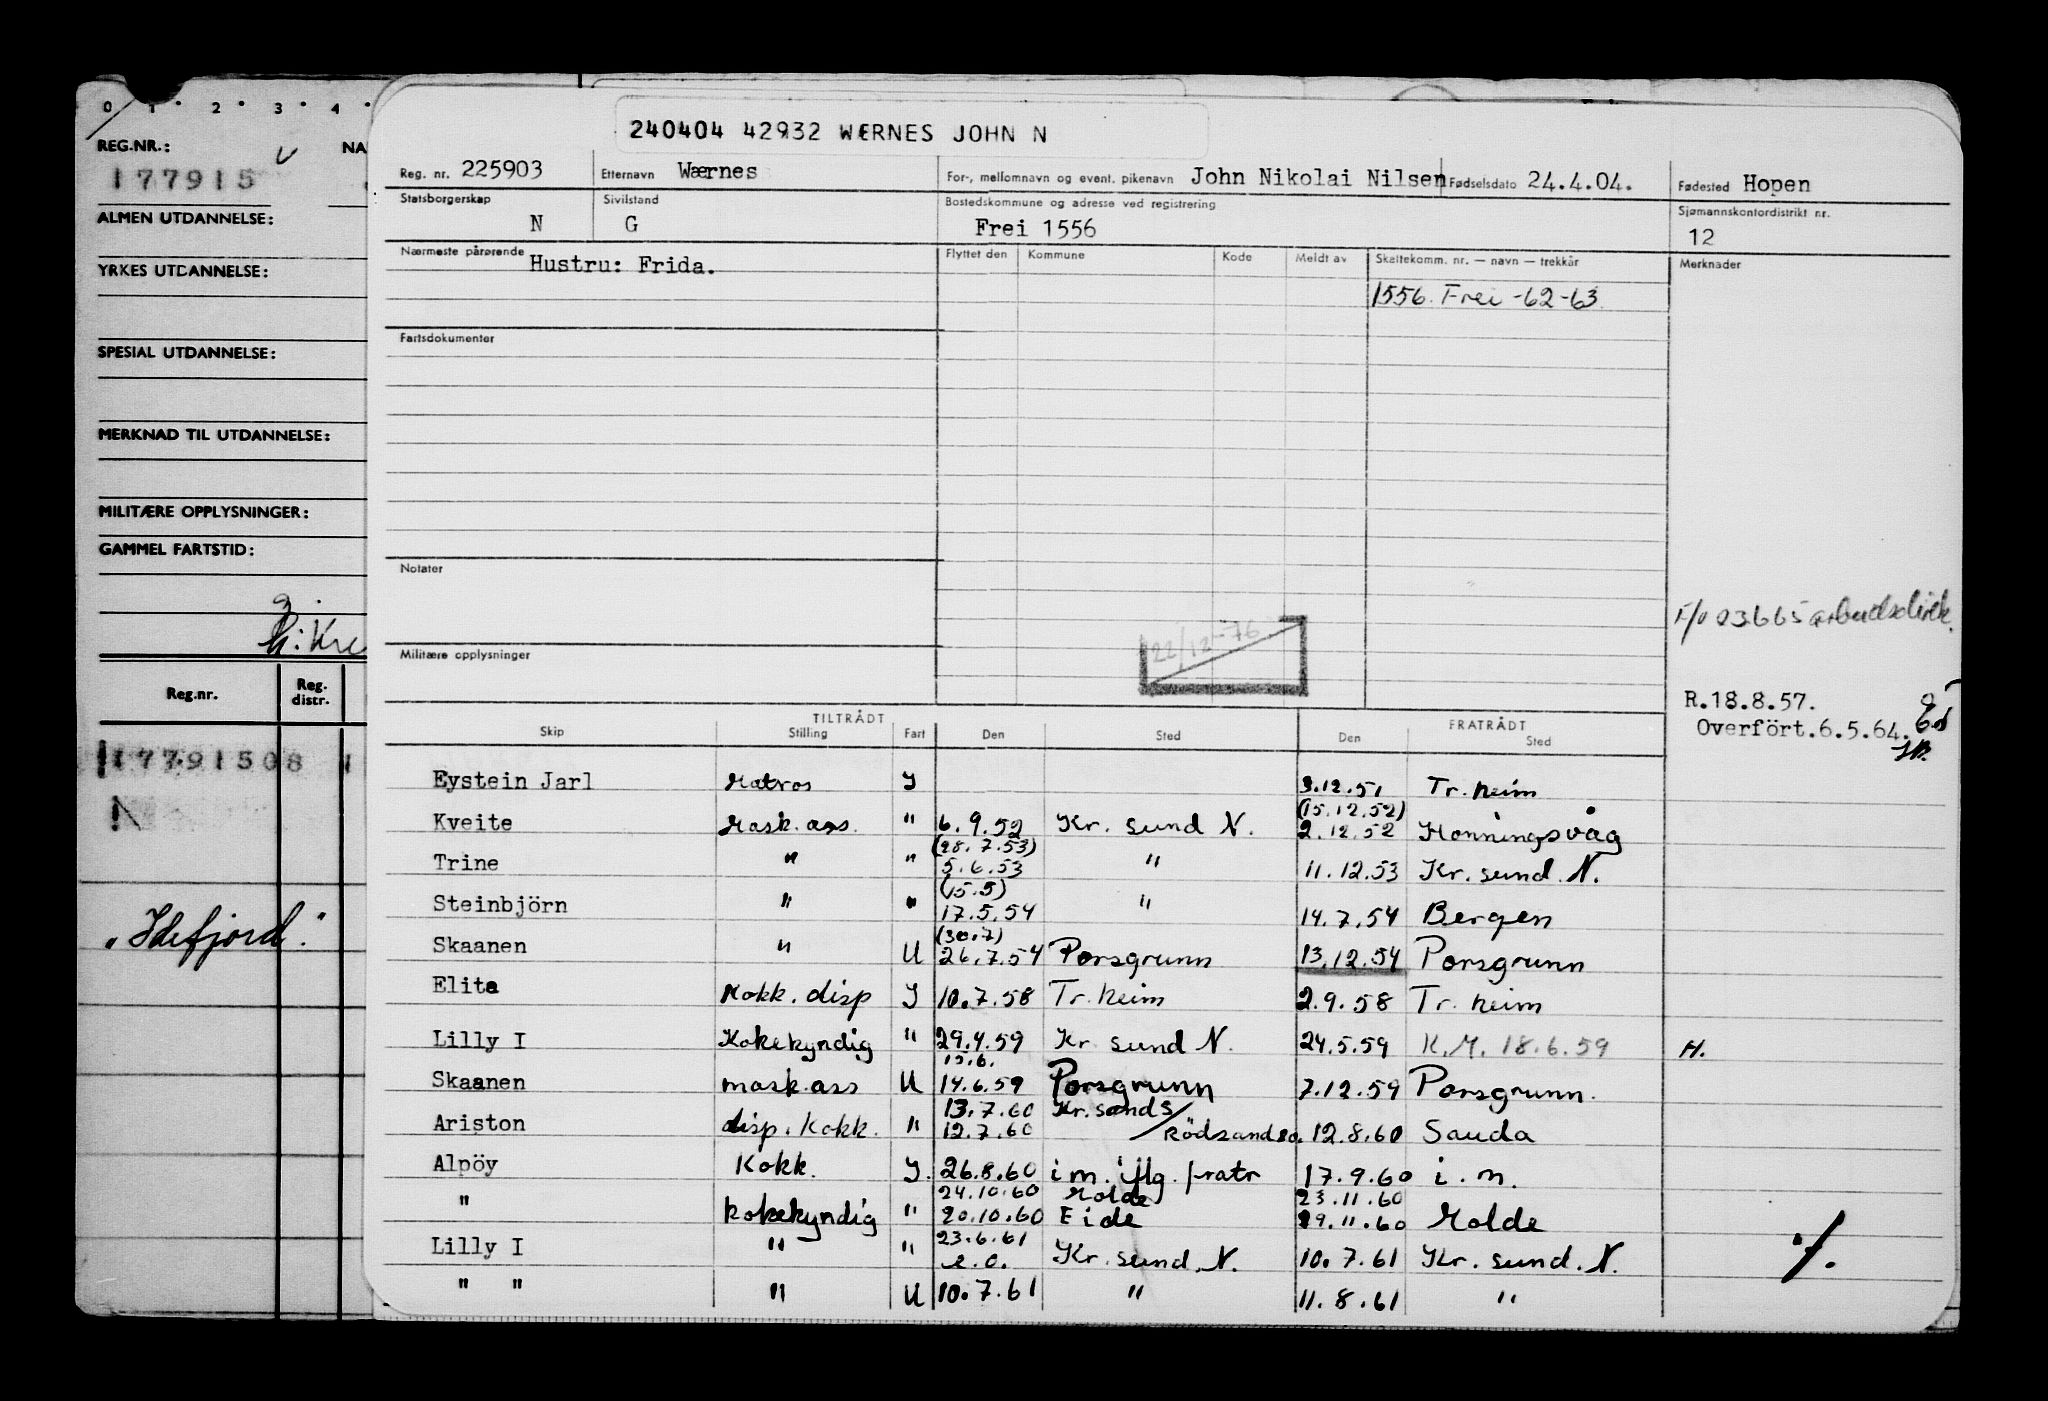 0 1 2 3 4
REG.NR.:
NA
177915
ALMEN UTDANNELSE:
YRKES UTDANNELSE:
SPESIAL UTDANNELSE:
MERKNAD TIL UTDANNELSE:
MILITÆRE OPPLYSNINGER:
GAMMEL FARTSTID:
Reg.nr. Reg. distr.
17791508 1
N
"Idefjord."
240404 42932 WÆRNES JOHN N
Reg. nr. 225903 Etternavn Wærnes For-, mellomnavn og event. pikenavn John Nikolai Nilsen Fødselsdato 24.4.04. Fødested Hopen
Statsborgerskap N Sivilstand G Bostedskommune og adresse ved registrering Frei 1556 Sjømannskontordistrikt nr. 12
Nærmeste pårørende Hustru: Frida. Flyttet den Kommune Kode Meldt av Skattekomm. nr. — navn — trekkår Merknader
1556. Frei -62-63
Fartsdokumenter
Notater
22/12-76
Militære opplysninger
R.18.8.57.
Overfört.6.5.64.
TILTRÅDT FRATRÅDT
Skip Stilling Fart Den Sted Den Sted
Eystein Jarl Matros I 3.12.51 Tr.heim
(15.12.52)
Kveite Mask.ass. " 6.9.52 Kr.sund N. 2.12.52 Honningsvåg
(28.7.53)
Trine " " 5.6.53 " 11.12.53 Kr.sund.N.
(15.5)
Steinbjörn " " 17.5.54 " 14.7.54 Bergen
(30.7)
Skaanen " U 26.7.54 Porsgrunn 13.12.54 Porsgrunn
Elita Kokk.disp I 10.7.58 Tr.heim 2.9.58 Tr.heim
Lilly I Kokekyndig " 29.4.59 Kr sund N. 24.5.59 K.M. 18.6.59 H.
15.6.
Skaanen mask.ass U 14.6.59 Porsgrunn 7.12.59 Porsgrunn.
13.7.60 Kr.sands/
Ariston disp.Kokk. " 12.7.60 Rödsandso. 12.8.60 Sauda
Alpöy Kokk. I. 26.8.60 i m. iflg. fratr 17.9.60 i.m.
24.10.60 Molde 23.11.60
" kokekyndig " 20.10.60 Eide 19.11.60 Molde
23.6.61
Lilly I " " e.o. Kr.sund.N. 10.7.61 Kr.sund.N.
" " " U 10.7.61 " 11.8.61 "